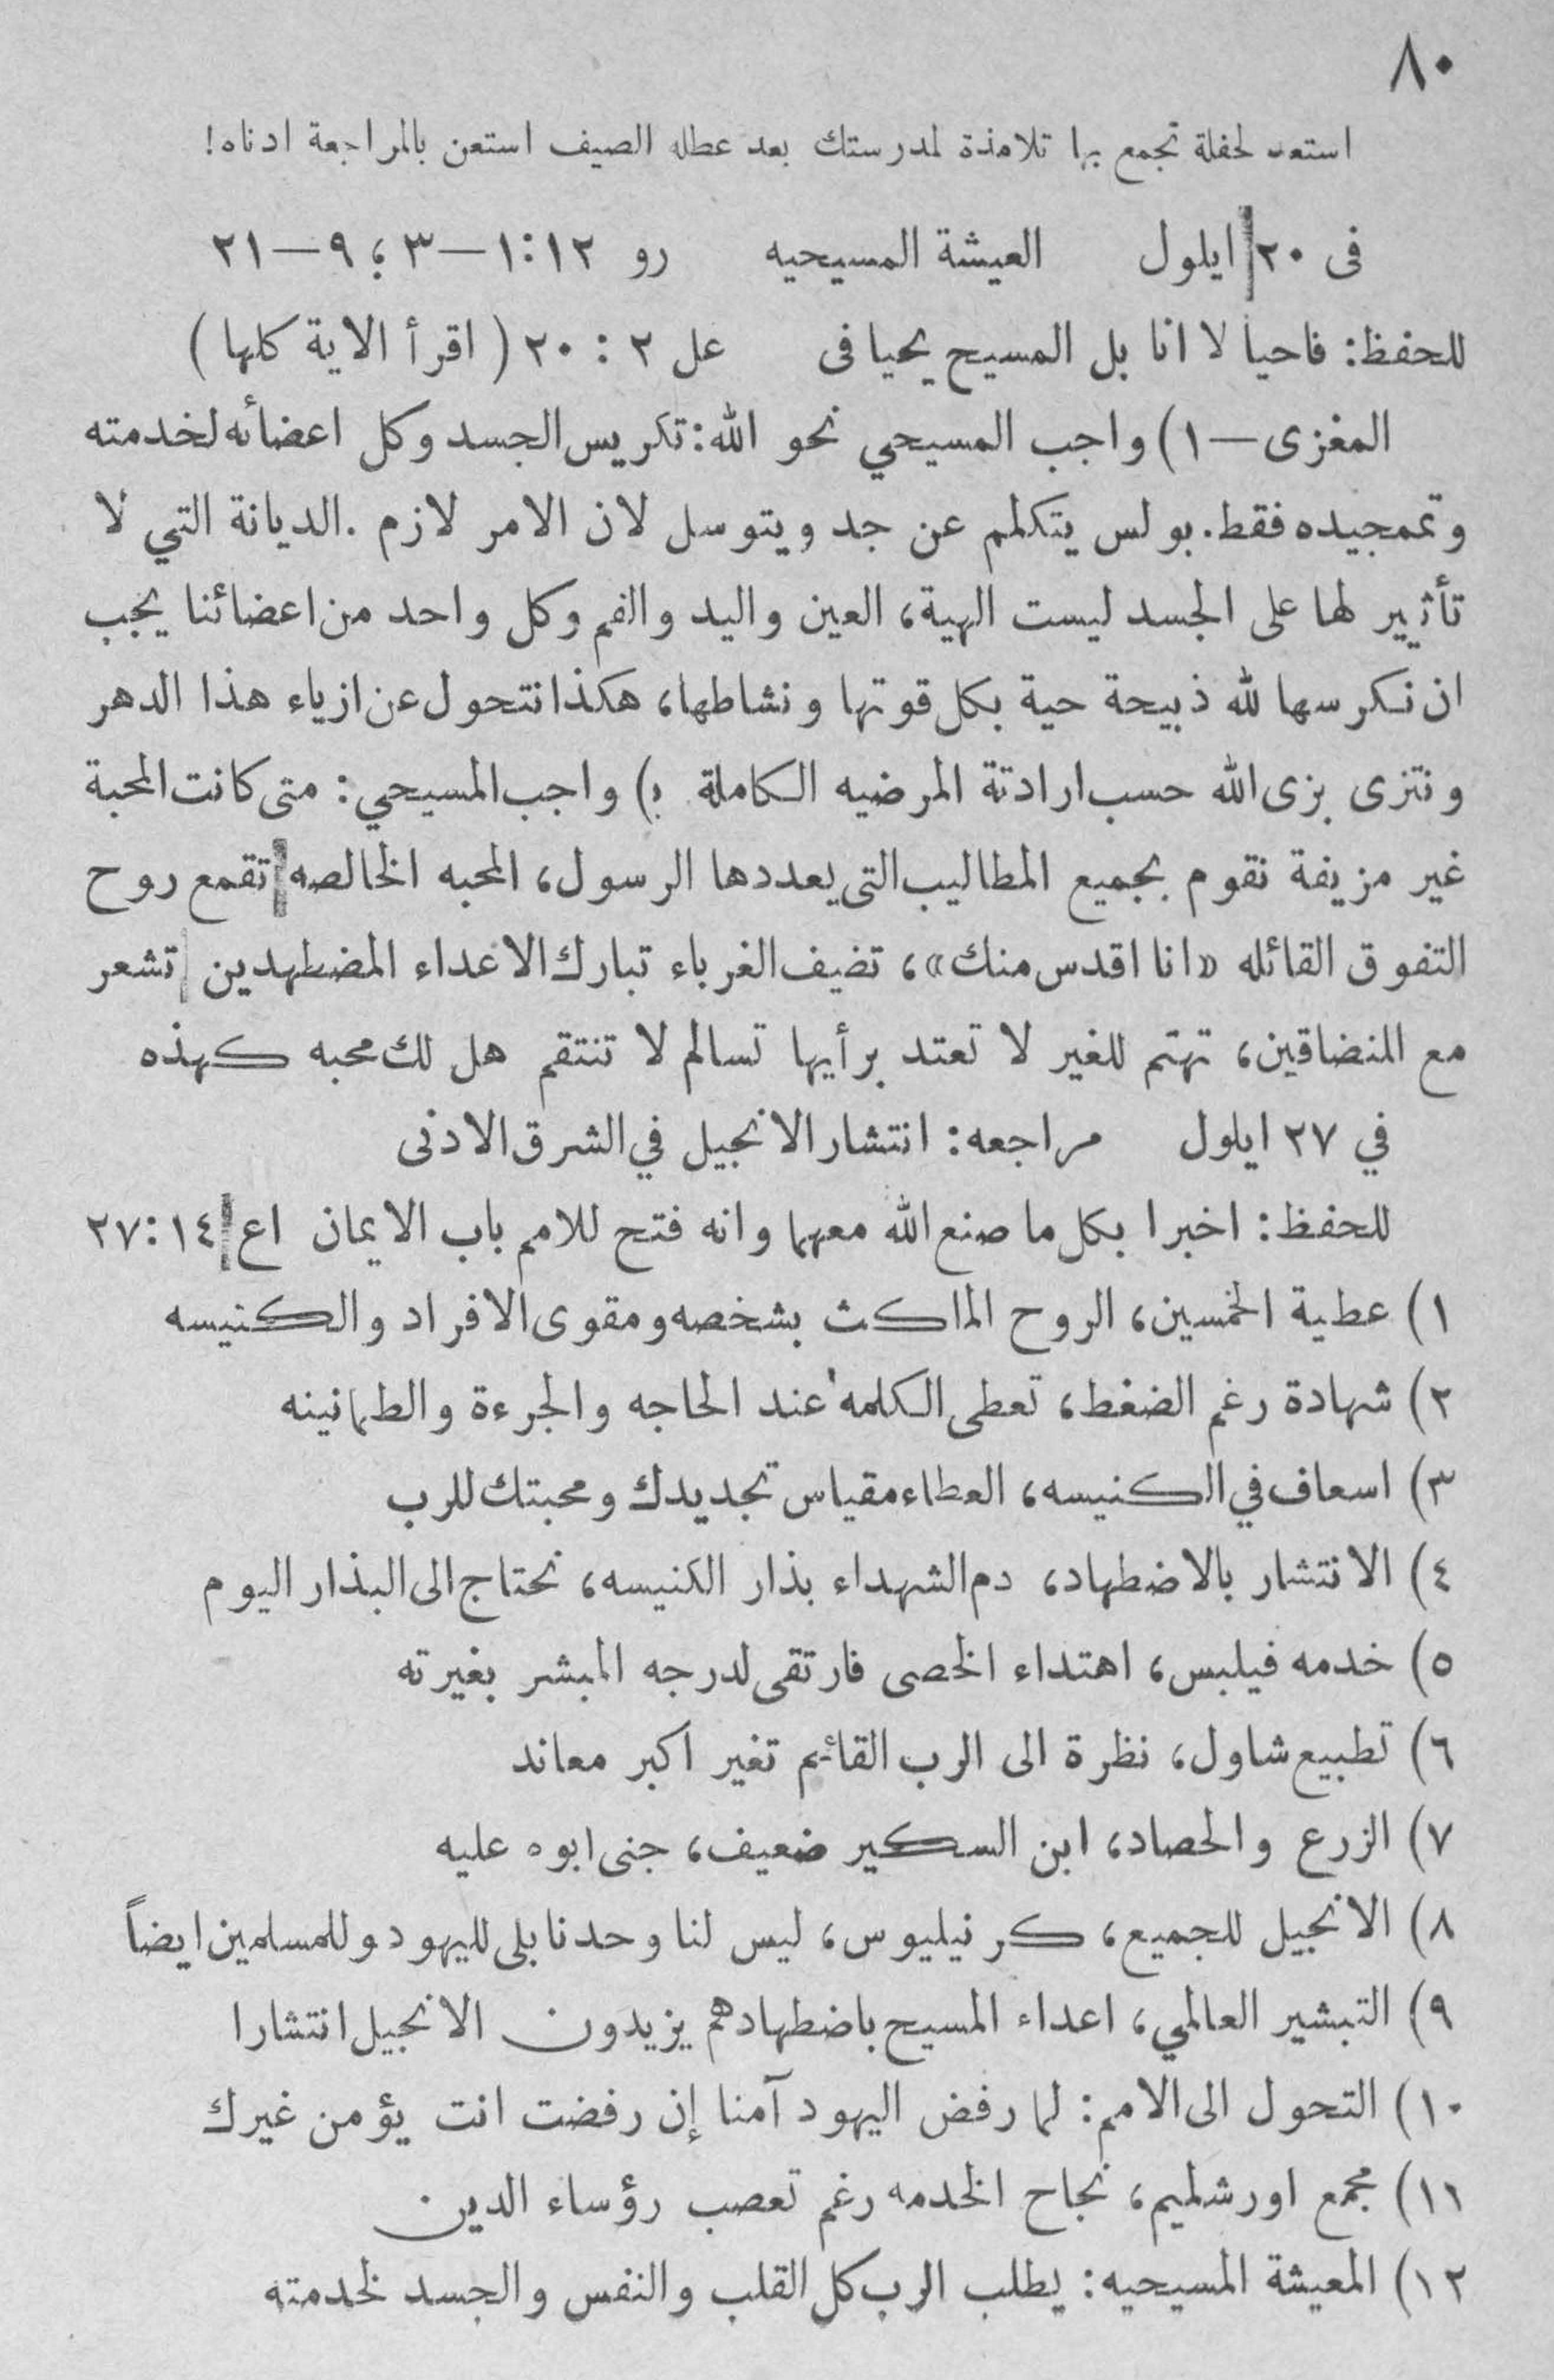 ٨٠
استعد لحفلة تجمع بها تلامذة لمدرستك بعد عطله الصيف استعن بالمراجعة ادناه!
فى ٢٠ ايلول العيشة المسيحيه رو ١٢:١—٣؛ ٩—٢١
للحفظ: فاحيا لا انا بل المسيح يحيا فى عل ٢ : ٢٠ (اقرأ الاية كلها)
المغزى—١) واجب المسيحي نحو الله: تكريس الجسد وكل اعضائه لخدمته
وتمجيده فقط. بولس يتكلم عن جد ويتوسل لان الامر لازم. الديانة التي لا
تأثير لها على الجسد ليست الهية، العين واليد والفم وكل واحد من اعضائنا يجب
ان نكرسها لله ذبيحة حية بكل قوتها ونشاطها، هكذا نتحول عن ازياء هذا الدهر
ونتزى بزى الله حسب ارادتة المرضيه الكاملة ) واجب المسيحي: متى كانت المحبة
غير مزيفة نقوم بجميع المطاليب التى يعددها الرسول، المحبه الخالصه تقمع روح
التفوق القائله «انا اقدس منك»، تضيف الغرباء تبارك الاعداء المضطهدين تشعر
مع المنضاقين، تهتم للغير لا تعتد برأيها تسالم لا تنتقم هل لك محبه كهذه
في ٢٧ ايلول مراجعه: انتشار الانجيل في الشرق الادنى
للحفظ: اخبرا بكل ما صنع الله معهما وانه فتح للامم باب الايمان اع ١٤:٢٧
١) عطية الخمسين، الروح الماكث بشخصه ومقوى الافراد والكنيسه
٢) شهادة رغم الضغط، تعطى الكلمه عند الحاجه والجرءة والطمانينه
٣) اسعاف في الكنيسه، العطاء مقياس تجديدك ومحبتك للرب
٤) الانتشار بالاضطهاد، دم الشهداء بذار الكنيسه، نحتاج الى البذار اليوم
٥) خدمه فيلبس، اهتداء الخصى فارتقى لدرجه المبشر بغيرته
٦) تطبيع شاول، نظرة الى الرب القائم تغير اكبر معاند
٧) الزرع والحصاد، ابن السكير ضعيف، جنى ابوه عليه
٨) الانجيل للجميع، كرنيليوس، ليس لنا وحدنا بلى لليهود وللمسلمين ايضاً
٩) التبشير العالمي، اعداء المسيح باضطهادهم يزيدون الانجيل انتشارا
١٠) التحول الى الامم: لما رفض اليهود آمنا إن رفضت انت يؤمن غيرك
١١) مجمع اورشليم، نجاح الخدمه رغم تعصب رؤساء الدين.
١٢) المعيشة المسيحيه: يطلب الرب كل القلب والنفس والجسد لخدمته